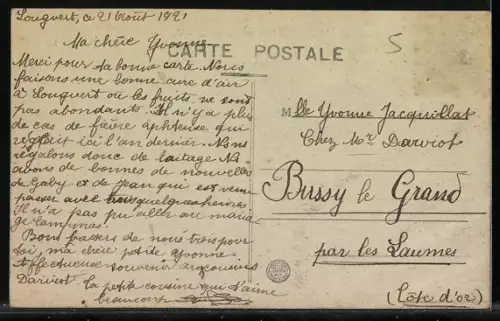 Longvert, ce 21 Août 1921
Ma chère Yvonne
CARTE POSTALE
5
Merci pour ta bonne carte. Nous
faisons une bonne cure d'air
à Longvert où les fruits ne sont
pas abondants. Il n'y a plus
de cas de fièvre aphteuse qui
régnait ici l'an dernier. Nous nous
régalons donc de laitage. Nous
avons de bonnes nouvelles
de Gaby et de Jean qui est venu
passer avec nous quelques heures
Il n'a pas pu aller au mariage
Bons baisers de nous trois pour
toi, ma chère petite Yvonne
affectueux souvenir aux cousins
Darviot. Ta petite cousine qui t'aime
beaucoup
Mlle Yvonne Jacquillat
Chez Mr Darviot
Bussy le Grand
par les Laumes
(Côte d'or)